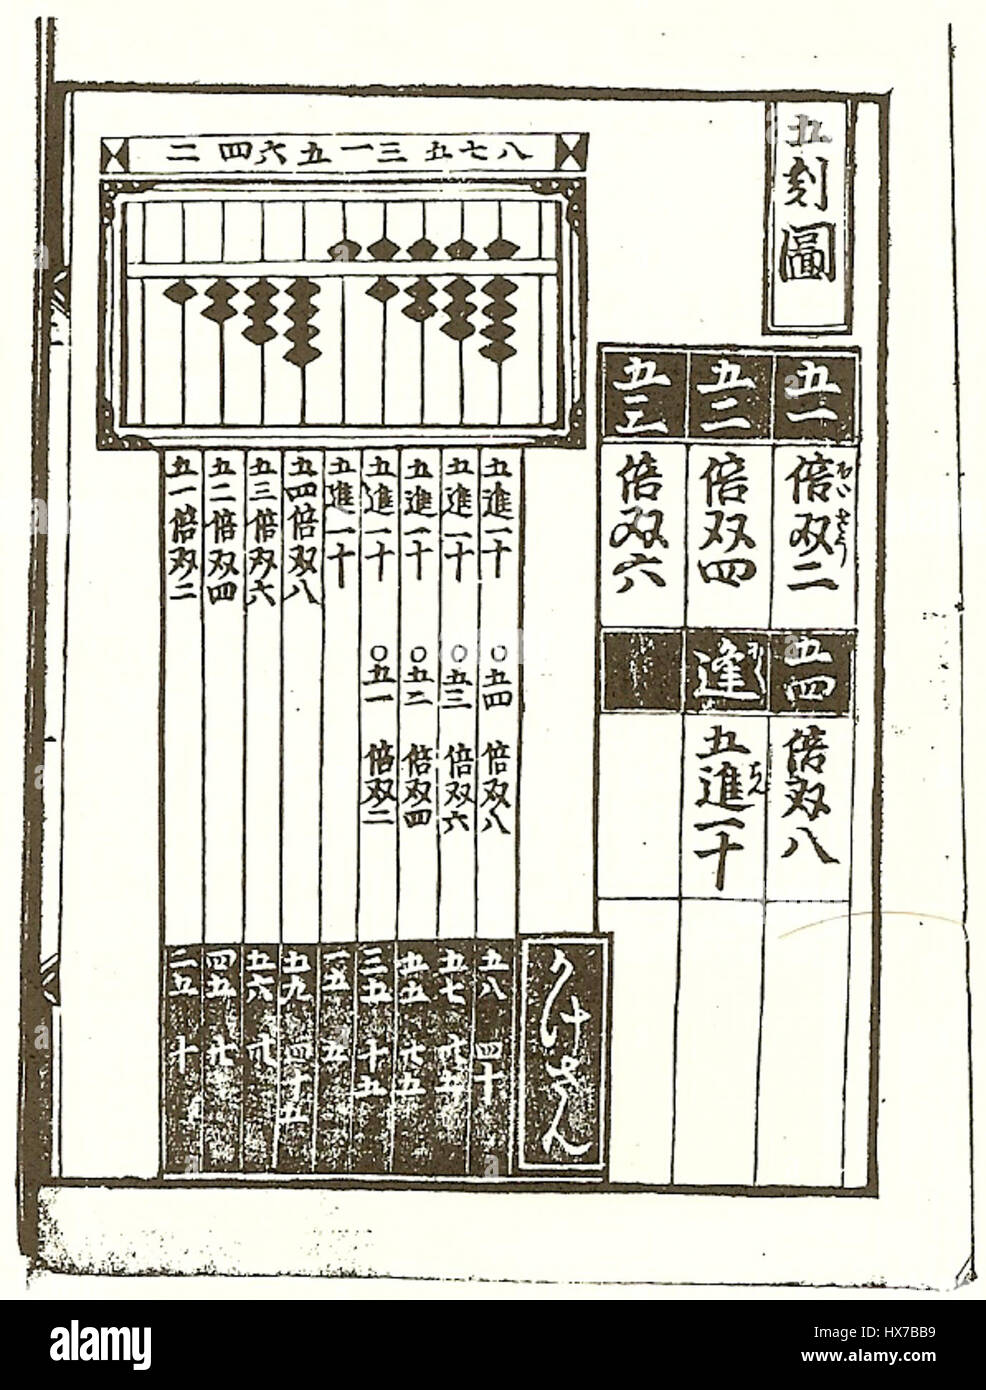 五刻圖
五一
倍双二
ばいそう
五二
倍双四
五三
倍双六
五四
倍双八
逢
五進一十
ちん
二四六五一三五七八
五進一十
○五四
倍双八
五進一十
○五三
倍双六
五進一十
○五二
倍双四
五進一十
○五一
倍双二
五進一十
五四倍双八
五三倍双六
五二倍双四
五一倍双二
かけさん
五八 四十
五七
五五
三五 十五
一五 五
五九 四十五
五六
四五
二五 十
alamy stock photo
alamy
HX7BB9
www.alamy.com